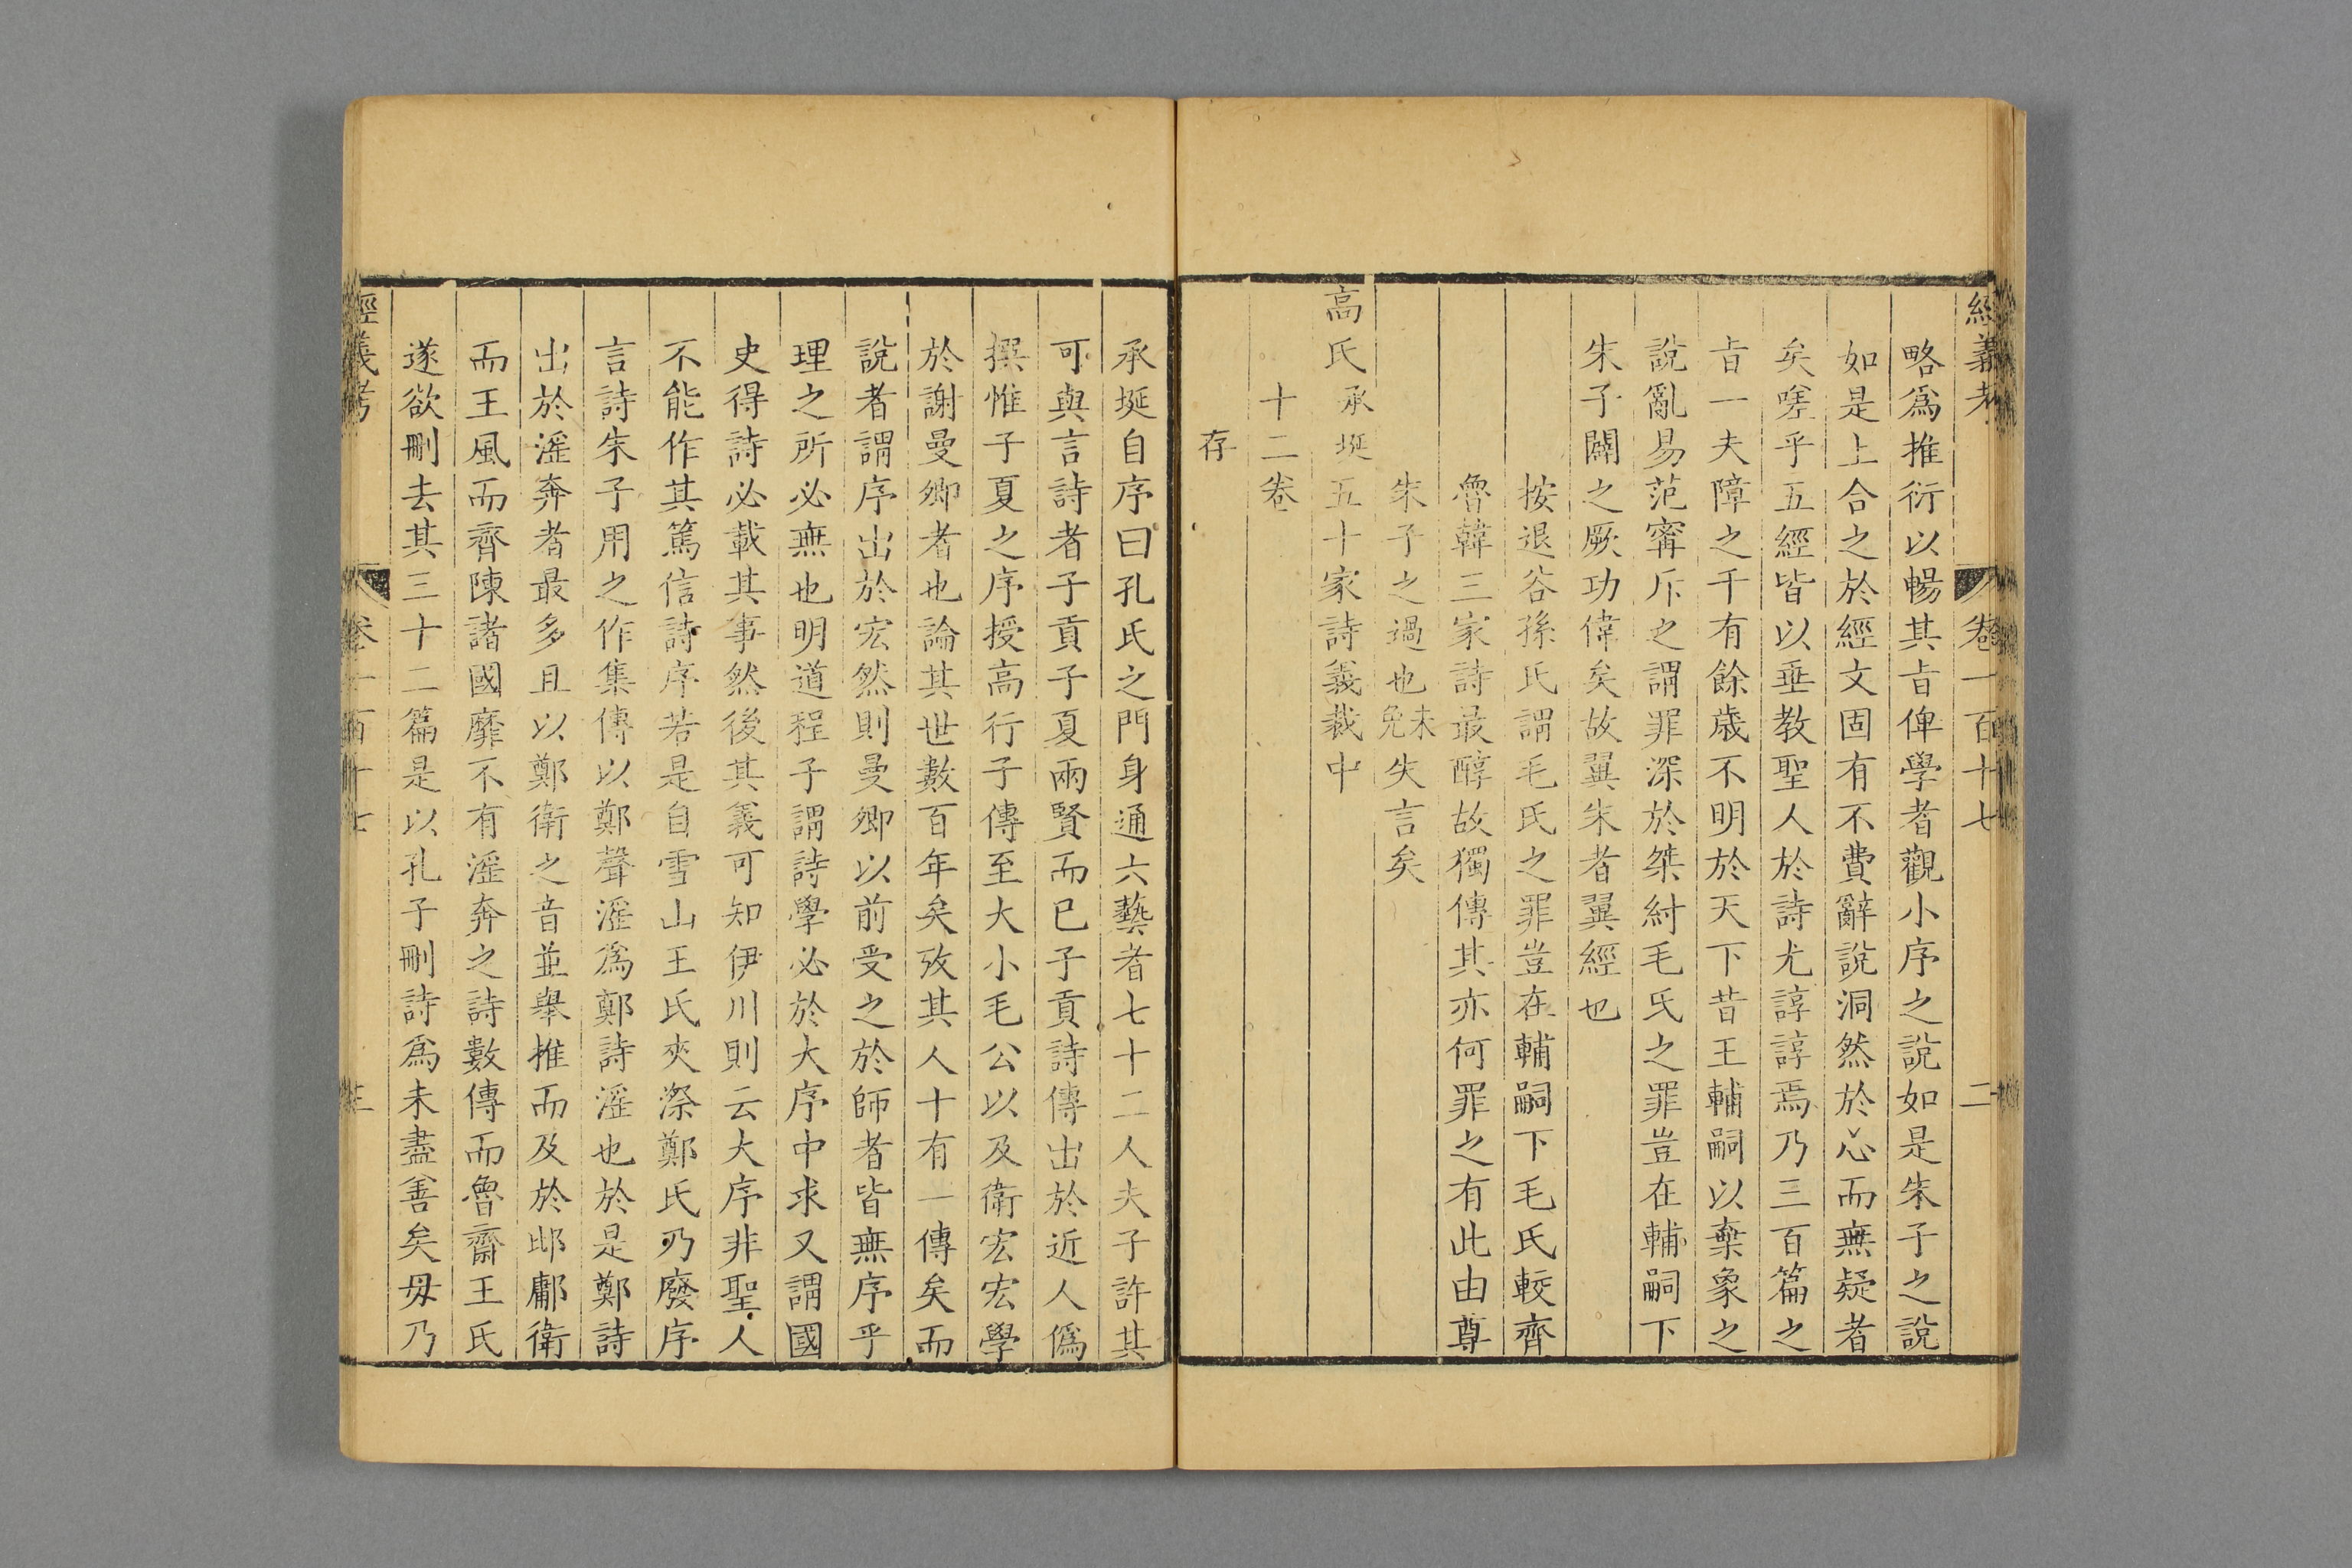 經義考 卷一百十七 二
略爲推衍以暢其㫖俾學者觀小序之說如是朱子之說
如是上合之於經文固有不費辭說洞然於心而無疑者
矣嗟乎五經皆以垂教聖人於詩尤諄諄焉乃三百篇之
㫖一夫障之千有餘歲不明於天下昔王輔嗣以棄象之
說亂易范甯斥之謂罪深於桀紂毛氏之罪豈在輔嗣下
朱子闢之厥功偉矣故翼朱者翼經也
按退谷孫氏謂毛氏之罪豈在輔嗣下毛氏較齊
魯韓三家詩最醇故獨傳其亦何罪之有此由尊
朱子之過也未免失言矣
高氏承埏五十家詩義裁中
十二卷
存
承埏自序曰孔氏之門身通六藝者七十二人夫子許其
可與言詩者子貢子夏兩賢而已子貢詩傳出於近人僞
撰惟子夏之序授高行子傳至大小毛公以及衛宏宏學
於謝曼卿者也論其世數百年矣攷其人十有一傳矣而
說者謂序出於宏然則曼卿以前受之於師者皆無序乎
理之所必無也明道程子謂詩學必於大序中求又謂國
史得詩必載其事然後其義可知伊川則云大序非聖人
不能作其篤信詩序若是自雪山王氏夾漈鄭氏乃廢序
言詩朱子用之作集傳以鄭聲淫爲鄭詩淫也於是鄭詩
出於淫奔者最多且以鄭衛之音並舉推而及於邶鄘衛
而王風而齊陳諸國靡不有淫奔之詩數傳而魯齋王氏
遂欲刪去其三十二篇是以孔子刪詩爲未盡善矣毋乃
經義考 卷一百十七 三